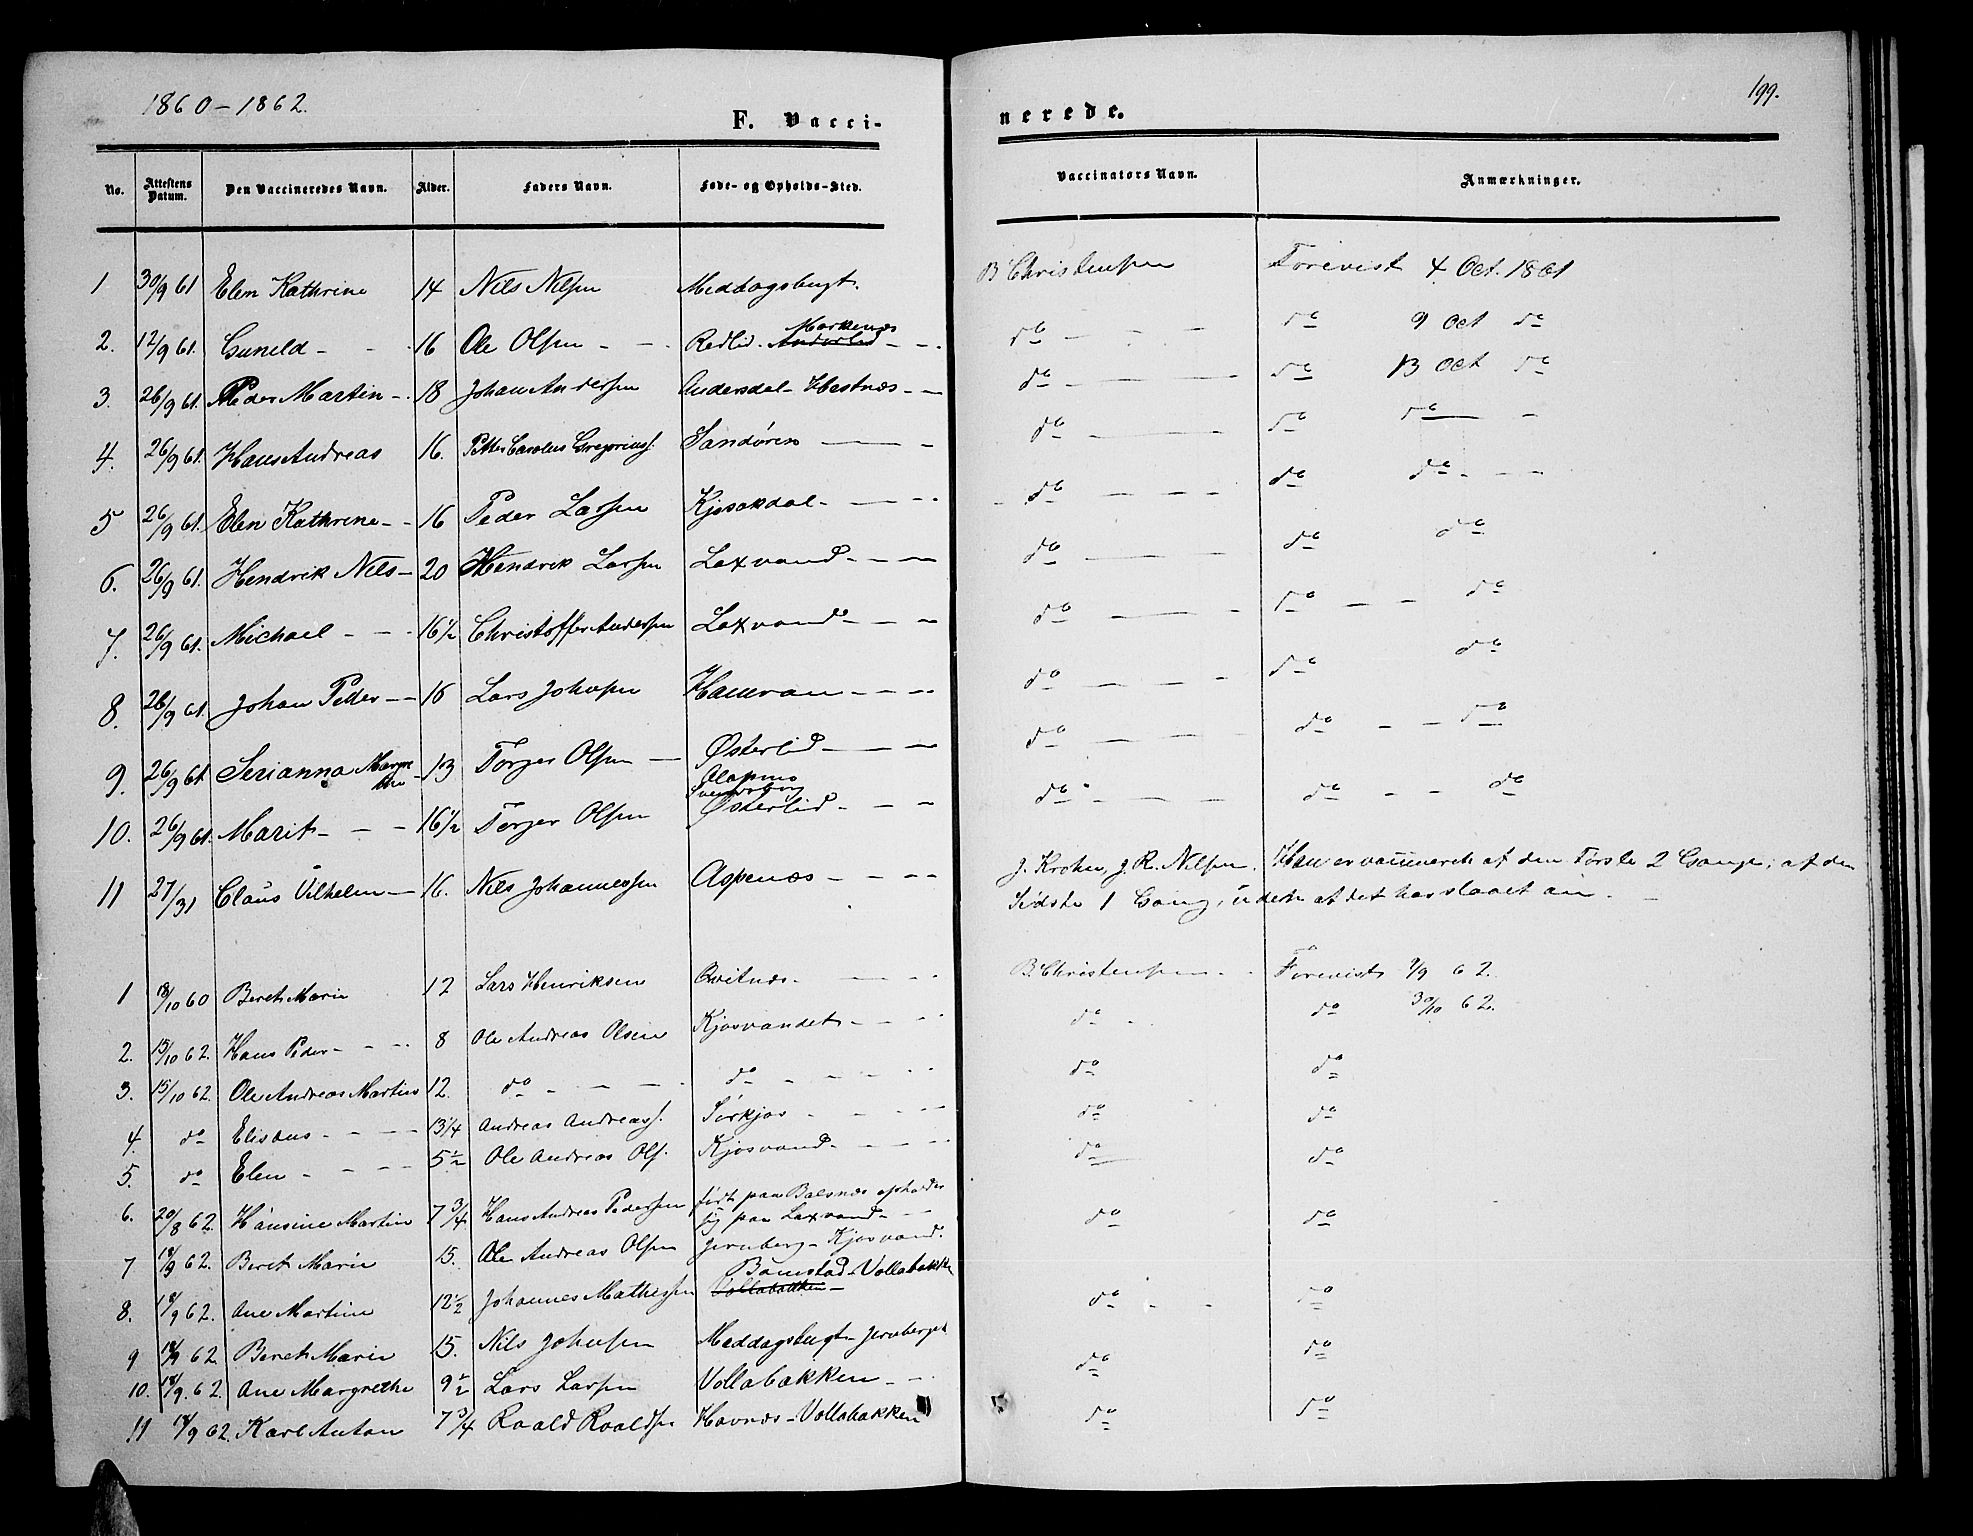 1860-1862.
199.
F. Vacci-
nerede.
No. Attestens Datum. Den Vaccineredes Navn. Alder. Faders Navn. Føde- og Opholds-Sted. Vaccinators Navn. Anmærkninger.
1 30/9 61 Elen Kathrine 14 Nils Nilsen Meddagsbugt. B Christensen Forevist 4 Oct. 1861
2. 12/9 61. Guneld - - 16 Ole Olsen - - Redlid. Markenæs - - do - - - do 9 Oct do
3. 26/9 61. Peder Martin - 18 Johan Andersen Andersdal - Hestnæs - - do - - - do 13 Oct do
4. 26/9 61. Hans Andreas 16. Petter Carolus Gregoriuss. Sandøren - - do - - - do do -
5 26/9 61. Elen Kathrine - - 16 Peder Larsen Kjosakdal - - - do - - - do do - - -
6. 26/9 61. Hendrik Nils - 20 Hendrik Larsen Laxvand - - - do - - do do
7. 26/9 61. Michael - - 16 1/2 Christoffer Andersen Laxvand - - - do - - - do - - do
8. 26/9 61. Johan Peder - - 16 Lars Johnsen - - - do - - - do do
9. 26/9 61 Serianna Margrethe - 13 Torger Olsen - Østerlid - - - do - - - do - - do
10. 26/9 61. Marit - - - 16 1/2 Torger Olsen Østerlid - - - do - - - do - - do
11 27/31 Claus Vilhelm - 16. Nils Johannessen Aspenæs - - - - J. Krohn, J. R. Nilsen. Han er vaccineret af den Første 2 Gange, af den
Sidste 1 Gang, uden at det har slaaet an.
1 18/10 60 Beret Marie 12 Lars Henriksen Qvitnæs - - - B Christensen - - Forevist 9/9 62.
2. 15/10 62. Hans Peder - - - 8 Ole Andreas Olsen Kjosvandet - - - do - do 30/10 62.
3. 15/10 62. Ole Andreas Martin 12. do - - - do - - - - do do
4. do Elisæus - - - 13 1/4 Andreas Andreass. Sørkjos - - - do do
5. do Elen - - - - 5 1/2 Ole Andreas Ols. Kjosvand - - - do do
6. 20/8 62. Hansine Martin 7 3/4 Hans Andreas Pedersen født paa Balsnæs opholder
sig paa Laxvand - - do do
7 18/9 62. Beret Marie 15. Ole Andreas Olsen Jernberg - Kjosvand.
8. 18/9 62. Ane Martine 12 1/2 Johannes Mathissen Bomstad - Vollabakken
Vollabakken - do - - do
9 18/9 62 Beret Marie 15. Nils Johnsen Meddagsbugt - Jernberget do do
10. 18/9. 62. Ane Margrethe 9 1/2 Lars Larsen Vollabakken - - 
11 18/9 62. Karl Anton 7 3/4 Roald Roaldsen Havnæs - Vollabakken do do